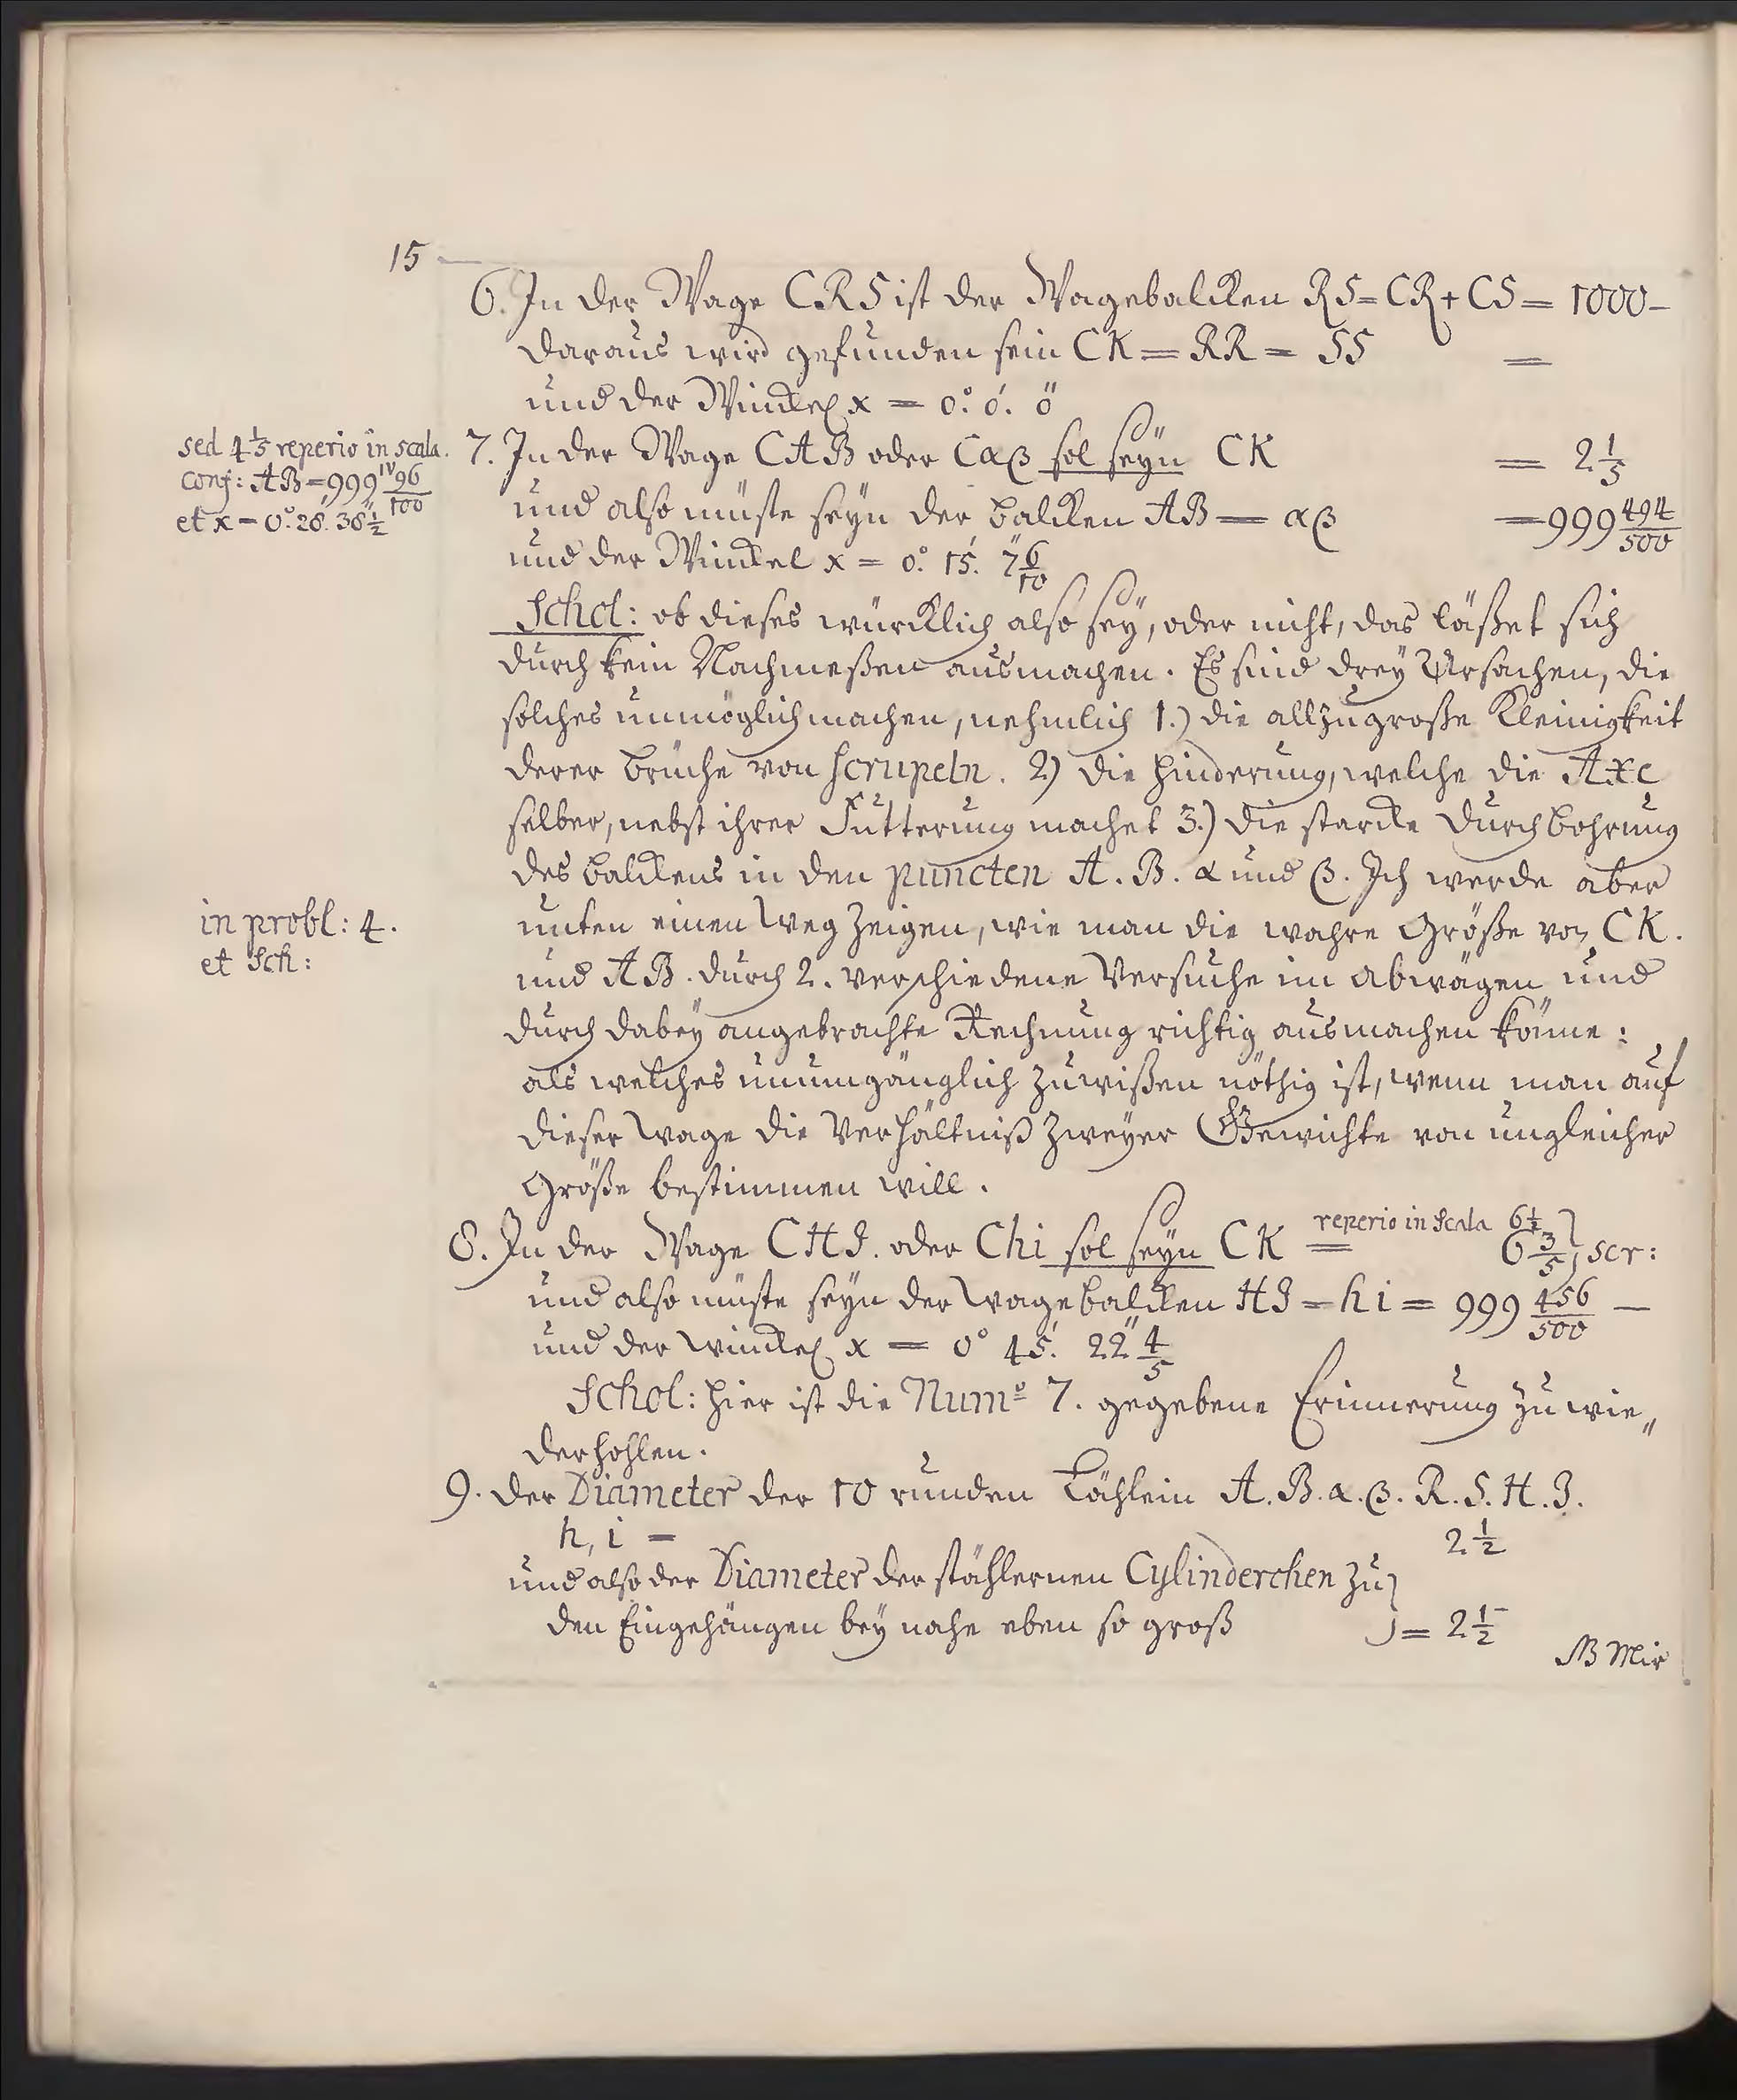 15
6. In der Wage CRS ist der Wagebalcken RS = CR + CS = 1000 –
daraus wird gefunden sein CK = RR = SS =
und der Winckel x = 0°. 0'. 0"
sed 4 1/5 reperio in scala.
conf: AB = 999 IV 96/100
et x = 0°. 28'. 38" 1/2
7. In der Wage CAB oder Cαβ sol seÿn CK = 2 1/5
und also müste seÿn der balcken AB = αβ = 999 494/500
und der Winckel x = 0° 15'. 7" 6/10
Schol: ob dieses würcklich also seÿ, oder nicht, das läßet sich
durch kein Nachmeßen ausmachen. Es sind dreÿ Ursachen, die
solches unmöglich machen, nehmlich 1.) die allzugroße Kleinigkeit
derer brüche von scrupeln. 2.) die hinderung, welche die Axe
selber, nebst ihrer Fütterung machet 3.) die starcke durchbohrung
des balckens in den puncten A. B. α und β. Ich werde aber
in probl: 4.
et Sch:
unten einen Weg zeigen, wie man die wahre Größe von CK.
und AB. durch 2. verschiedene Versuche im abwägen und
durch dabeÿ angebrachte Rechnung richtig ausmachen könne:
als welches unumgänglich zu wißen nöthig ist, wenn man auf
dieser Wage die Verhältniß zweÿer Gewichte von ungleicher
Größe bestimmen will.
8. In der Wage CHI. oder Chi sol seÿn CK = reperio in Scala 6 1/2
6 3/5 } scr:
und also müste seÿn der Wagebalcken HI = hi = 999 456/500 –
und der Winckel x = 0° 45'. 22" 4/5
Schol: hier ist die Numo 7. gegebene Erinnerung zu wie„
derhohlen.
9. der Diameter der 10 runden Löchlein A. B. α. β. R. S. H. I.
h, i = 2 1/2
und also der Diameter der stählernen Cylinderchen zu
den Eingehängen beÿ nahe eben so groß } = 2 1/2 –
NB Mir